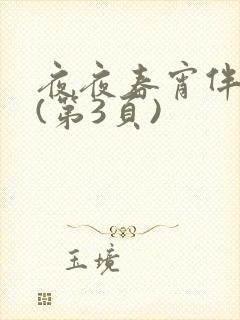 夜夜春宵伴
(第3頁)
玉境